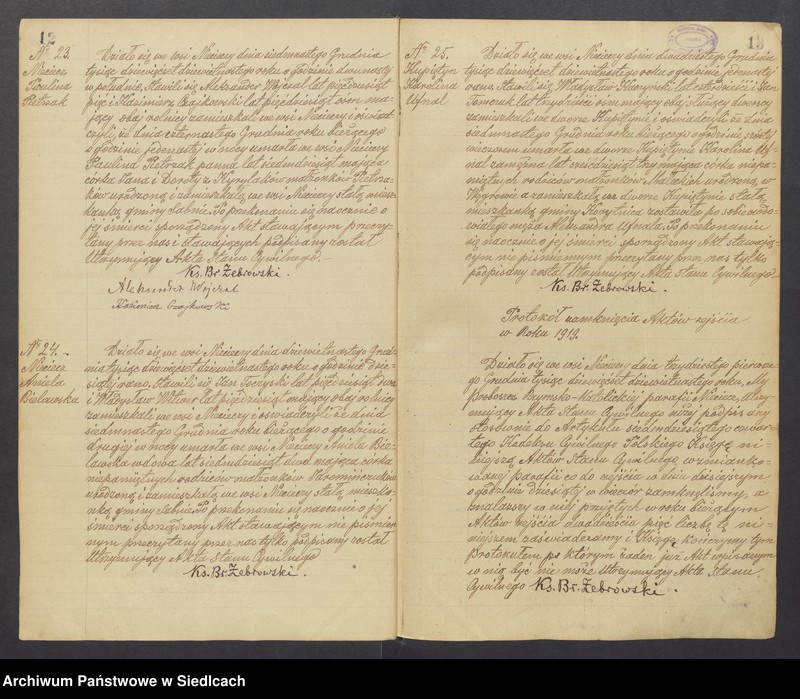 12
№ 23.
Nieciecz
Paulina
Pietrzak
Działo się we wsi Niecieczy dnia siedmnastego Grudnia
tysiąc dziewięćset dziewiętnastego roku o godzinie dwunastej
w południe. Stawili się Aleksander Wójczal lat pięćdziesiąt
pięć i Kazimierz Czajkowski lat pięćdziesiąt osm ma-
jący obaj rolnicy zamieszkali we wsi Niecieczy i oświad-
czyli że dnia czternastego Grudnia roku bieżącego
o godzinie jedenastej w nocy umarła we wsi Niecieczy
Paulina Pietrzak panna lat siedmdziesiąt mająca
córka Jana i Doroty z małżonków Pietrza-
ków urodzona i zamieszkała we wsi Niecieczy stała miesz-
kanka gminy Sabnie. Po przekonaniu się naocznie o
jej śmierci sporządzony Akt stawającym przeczy-
tany przez nas i stawających podpisany został
Utrzymujący Akta Stanu Cywilnego.-
Ks. Br. Żebrowski.
Aleksander Wójczal
Kazimierz Czajkowski
№ 24.-
Nieciecz
Aniela
Bielawska
Działo się we wsi Niecieczy dnia dziewiętnastego Grud-
nia tysiąc dziewięćset dziewiętnastego roku o godzinie dzie-
siątej rano. Stawili się Jan lat pięćdziesiąt dwa
i Władysław lat pięćdziesiąt mający obaj rolnicy
zamieszkali we wsi Niecieczy i oświadczyli że dnia
siedmnastego Grudnia roku bieżącego o godzinie
drugiej w nocy umarła we wsi Niecieczy Aniela Bie-
lawska wdowa lat siedmdziesiąt dwa mająca córka
niepamiętnych rodziców małżonków
urodzona i zamieszkała we wsi Niecieczy stała mieszka-
nka gminy Sabnie. Po przekonaniu się naocznie o jej
śmierci sporządzony Akt stawającym nie piśmien-
nym przeczytany przez nas tylko podpisany został
Utrzymujący Akta Stanu Cywilnego
Ks. Br. Żebrowski.
13
№ 25.
Kupiętyn
Karolina
Ufnal
Działo się we wsi Niecieczy dnia dwudziestego Grudnia
tysiąc dziewięćset dziewiętnastego roku o godzinie jedenastej
rano. Stawili się Władysław lat czterdzieści i Jan
Tomczuk lat trzydzieści osm mający obaj służący dworscy
zamieszkali we dworze Kupiętynie i oświadczyli że dnia
siedmnastego Grudnia roku bieżącego o godzinie szóstej
wieczorem umarła we dworze Kupiętynie Karolina Uf-
nal zamężna lat sześćdziesiąt trzy mająca córka niepa-
miętnych rodziców małżonków Małeckich urodzona w
Węgrowie a zamieszkała we dworze Kupiętynie stała
mieszkanka gminy Korytnica zostawiła po sobie wdo-
wiałego męża Aleksandra Ufnala. Po przekonaniu
się naocznie o jej śmierci sporządzony Akt stawają-
cym nie piśmiennym przeczytany przez nas tylko
podpisany został Utrzymujący Akta Stanu Cywilnego.-
Ks. Br. Żebrowski.
Protokół zamknięcia Aktów zejścia
w Roku 1919.
Działo się we wsi Niecieczy dnia trzydziestego pierwsze-
go Grudnia tysiąc dziewięćset dziewiętnastego roku. My
Proboszcz Rzymsko-Katolickiej parafii Nieciecz, Utrzy-
mujący Akta Stanu Cywilnego niżej podpisany
stosownie do Artykułu siedmdziesiątego czwar-
tego Kodeksu Cywilnego Polskiego Księgę ni-
niejszą Aktów Stanu Cywilnego wzmianko-
wanej parafii co do zejścia w dniu dzisiejszym
o godzinie dziesiątej w wieczór zamknęliśmy, a
znalazszy w niej przyjętych w roku bieżącym
Aktów zejścia dwadzieścia pięć liczbę tę ni-
niejszem zaświadczamy i Księgę kończymy tym
Protokułem po którym żaden już Akt wpisanym
w nią być nie może Utrzymujący Akta Stanu
Cywilnego Ks. Br. Żebrowski.
Archiwum Państwowe w Siedlcach